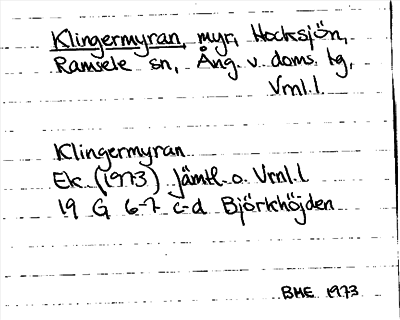 Klingermyran, myr, Hocksjön,
Ramsele sn, Ång. v. doms. tg,
Vrnl.l.
Klingermyran
Ek. (1973) Jämtl. o. Vrnl. l
19 G 6-7 c-d Björkhöjden
BME 1973